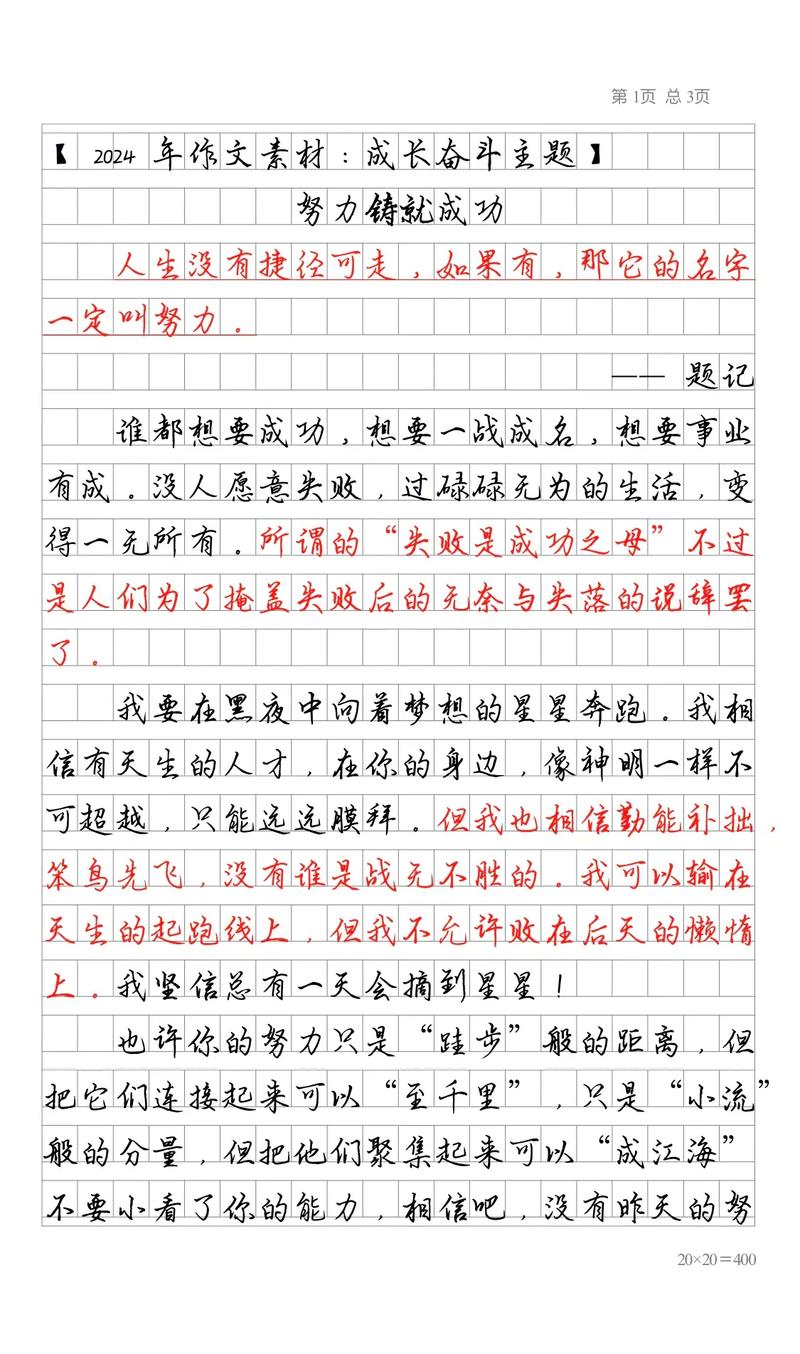 第 1页 总 3页
【 2024 年作文素材：成长奋斗主题】
努力铸就成功
人生没有捷径可走，如果有，那它的名字
一定叫努力。
—— 题记
谁都想要成功，想要一战成名，想要事业
有成。没人愿意失败，过碌碌无为的生活，变
得一无所有。所谓的“失败是成功之母”不过
是人们为了掩盖失败后的无奈与失落的说辞罢
了。
我要在黑夜中向着梦想的星星奔跑。我相
信有天生的人才，在你的身边，像神明一样不
可超越，只能远远膜拜。但我也相信勤能补拙，
笨鸟先飞，没有谁是战无不胜的。我可以输在
天生的起跑线上，但我不允许败在后天的懒惰
上。我坚信总有一天会摘到星星！
也许你的努力只是“跬步”般的距离，但
把它们连接起来可以“至千里”，只是“小流”
般的分量，但把他们聚集起来可以“成江海”
不要小看了你的能力，相信吧，没有昨天的努
20×20＝400